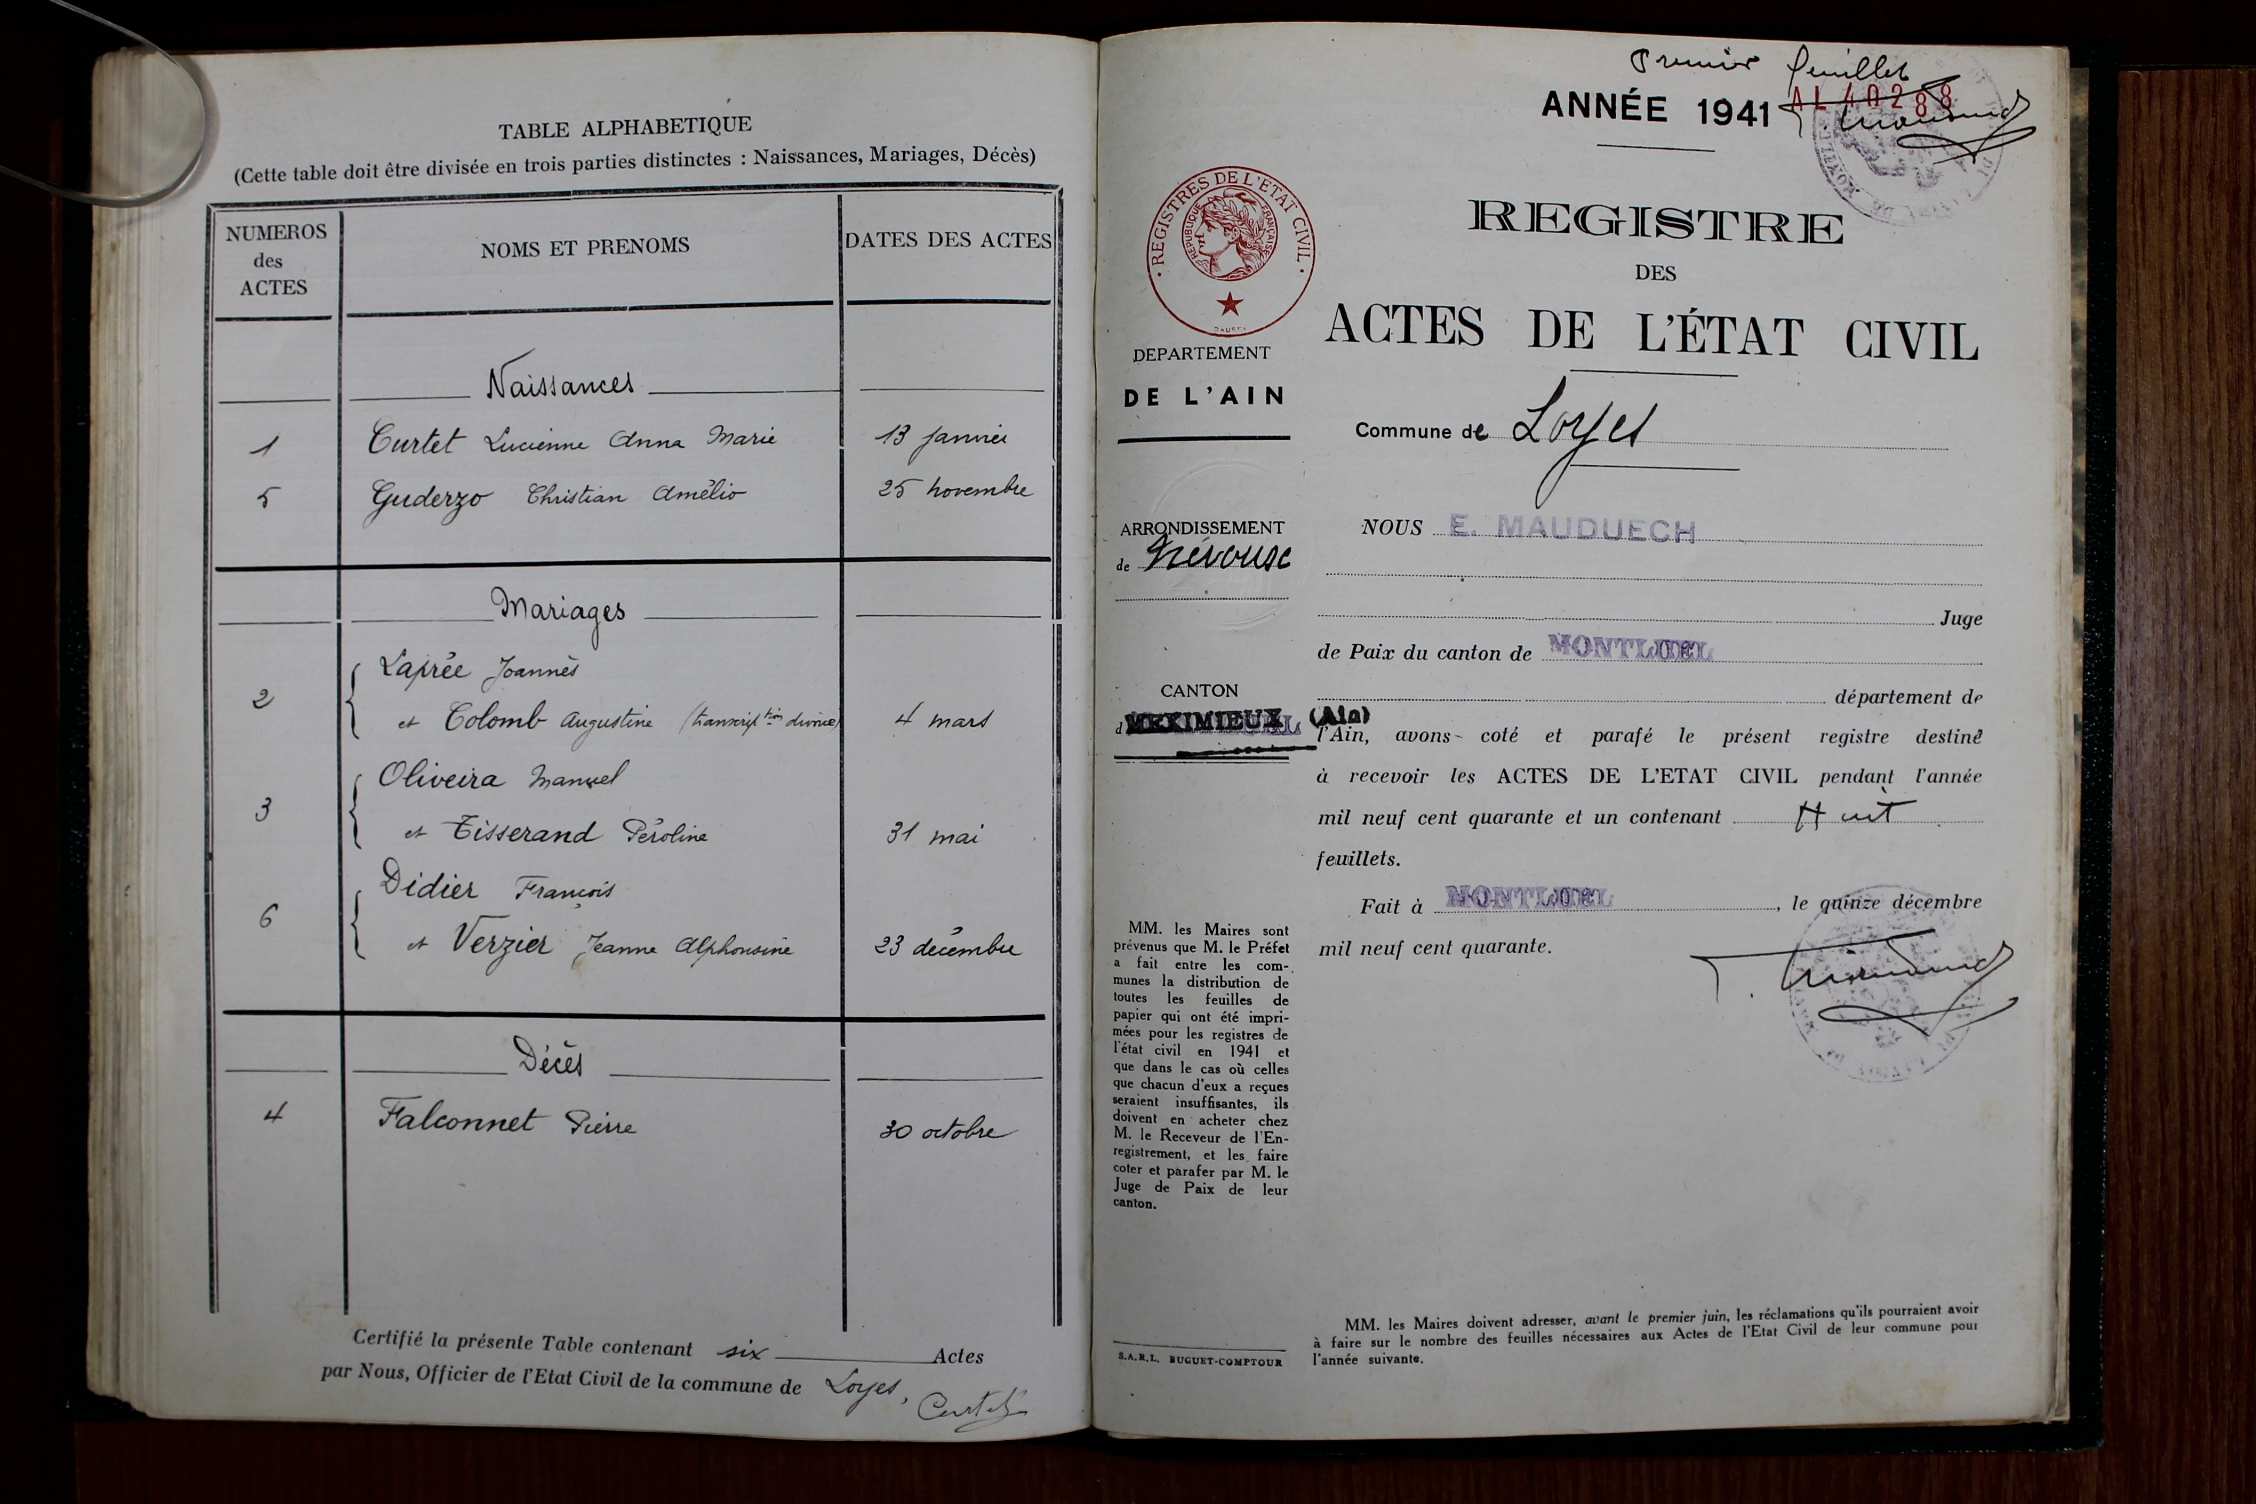 TABLE ALPHABETIQUE
(Cette table doit être divisée en trois parties distinctes : Naissances, Mariages, Décès)
NUMEROS des ACTES
NOMS ET PRENOMS
DATES DES ACTES
Naissances
1 Curtet Lucienne Anna Marie 13 janvier
5 Guderzo Christian Amélio 25 novembre
Mariages
Laprée Joannès
2 et Colomb Augustine (transcript tion divorce) 4 mars
Oliveira Manuel
3 et Tisserand Péroline 31 mai
Didier François
6 et Verzier Jeanne Alphonsine 23 décembre
Décès
4 Falconnet Pierre 30 octobre
Certifié la présente Table contenant six Actes
par Nous, Officier de l'Etat Civil de la commune de Loyes,
Curtet
Premier feuillet
ANNÉE 1941 AL 40288
REGISTRES DE L'ETAT CIVIL
REPUBLIQUE FRANÇAISE
REGISTRE
DES
ACTES DE L'ÉTAT CIVIL
DEPARTEMENT
DE L'AIN
Commune de Loyes
ARRONDISSEMENT
de Trévoux
NOUS E. MAUDUECH
Juge
de Paix du canton de MONTLUEL
département de
CANTON
d MEXIMIEUX (Ain)
l'Ain, avons coté et parafé le présent registre destiné
à recevoir les ACTES DE L'ETAT CIVIL pendant l'année
mil neuf cent quarante et un contenant Huit
feuillets.
Fait à MONTLUEL, le quinze décembre
mil neuf cent quarante.
MM. les Maires sont
prévenus que M. le Préfet
a fait entre les com-
munes la distribution de
toutes les feuilles de
papier qui ont été impri-
mées pour les registres de
l'état civil en 1941 et
que dans le cas où celles
que chacun d'eux a reçues
seraient insuffisantes, ils
doivent en acheter chez
M. le Receveur de l'En-
registrement, et les faire
coter et parafer par M. le
Juge de Paix de leur
canton.
S.A.R.L. BUGUET-COMPTOUR
MM. les Maires doivent adresser, avant le premier juin, les réclamations qu'ils pourraient avoir
à faire sur le nombre des feuilles nécessaires aux Actes de l'Etat Civil de leur commune pour
l'année suivante.